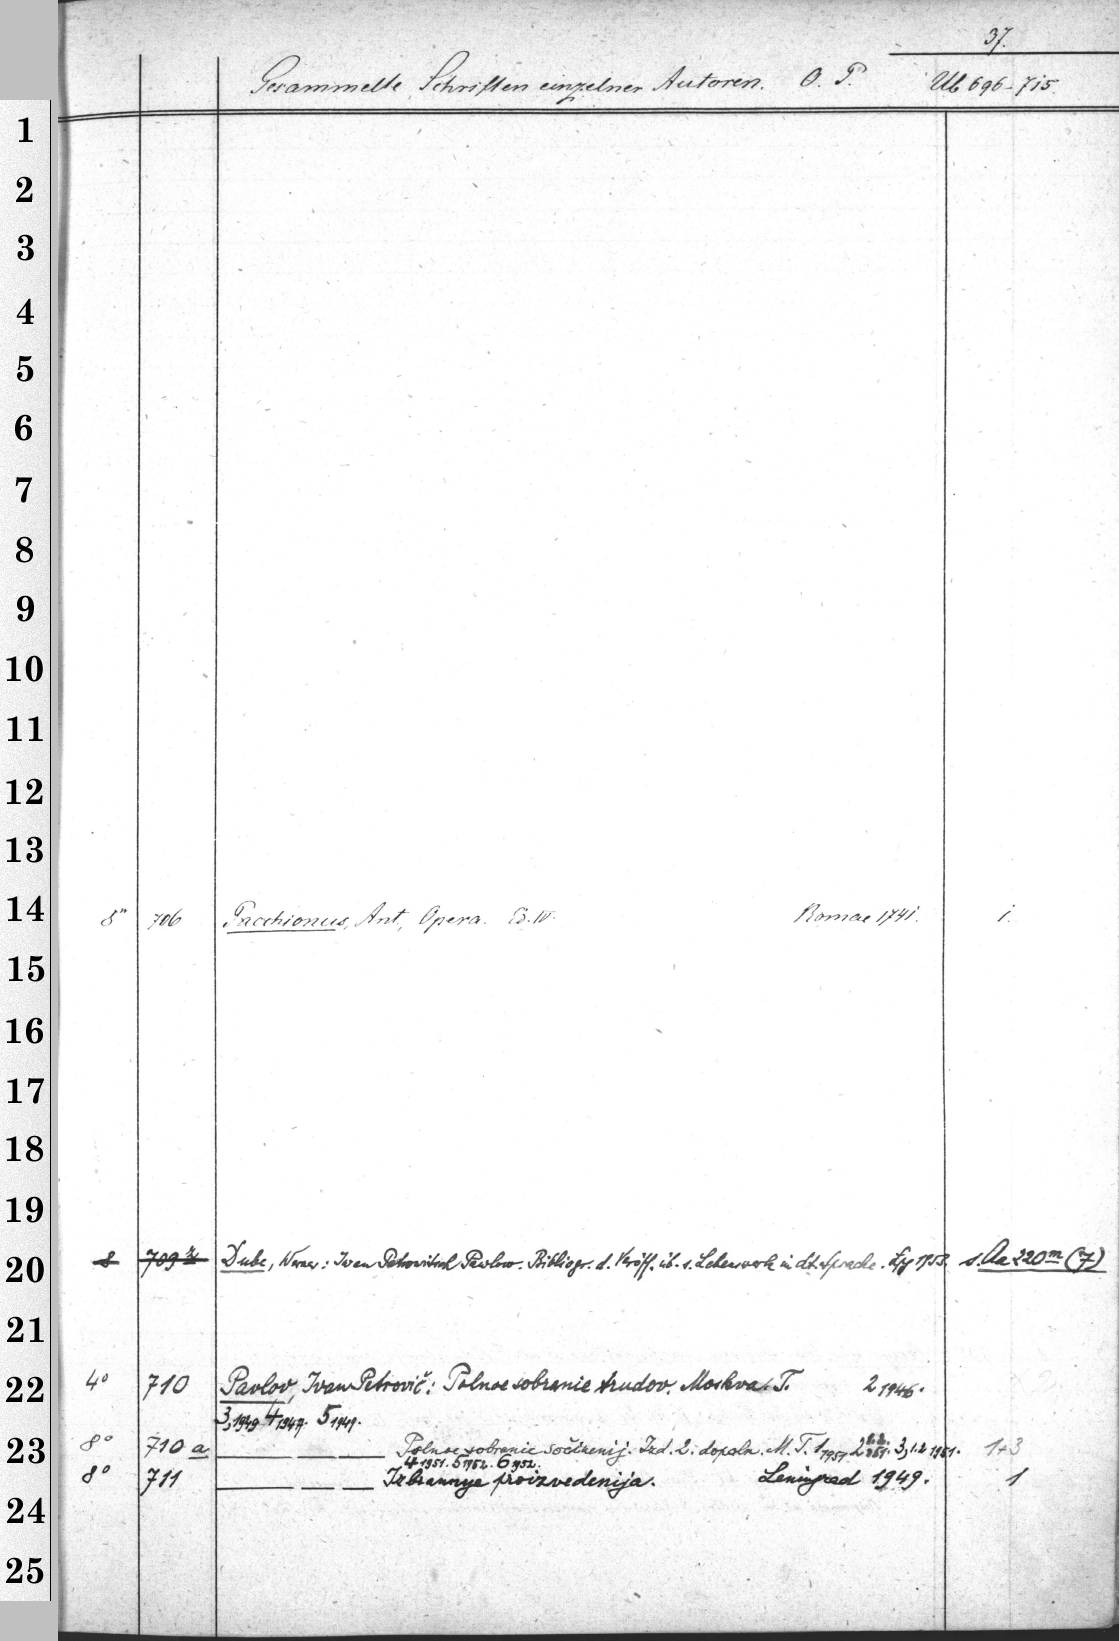 37.
Gesammelte Schriften einzelner Autoren. O. P. Ub 696-715
1
2
3
4
5
6
7
8
9
10
11
12
13
14 8° 706 Pacchionus, Ant., Opera. Ed. IV. Romae 1741. 1.
15
16
17
18
19
20 8 709 Dube, Werner: Ivan Petrovitsch Pavlow. Bibliogr. d. Veröff. üb. s. Lebenswerk in dt. Sprache. Lpz 1953. s. Aa 220 m (7)
21
22 4° 710 Pavlov, Ivan Petrovič: Polnoe sobranie trudov. Moskva. T. 2 1946.
3, 1949 4 1947. 5 1949.
23 8° 710 a — — — Polnoe sobranie sočinenij. Izd. 2. dopoln. M. T. 1 1951 2 1.2. 1951. 3, 1.2 1951. 1+3
4 1951. 5 1952. 6 1952.
8° 711 — — — Izbrannye proizvedenija. Leningrad 1949. 1
24
25